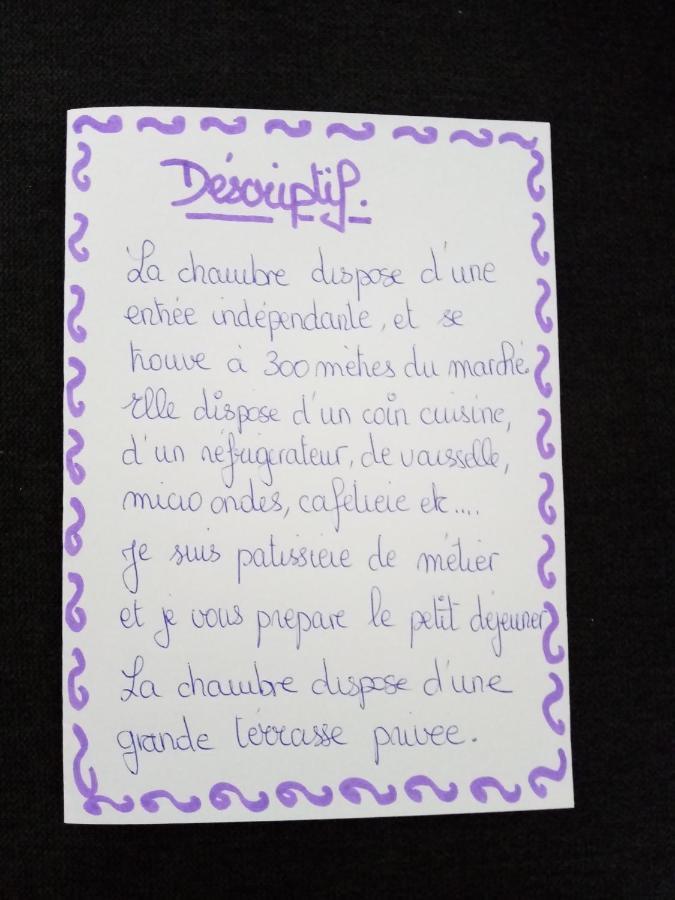 Déscriptif.
La chambre dispose d'une
entrée indépendante, et se
trouve à 300 mètres du marché.
Elle dispose d'un coin cuisine,
d'un réfrigerateur, de vaisselle,
micro ondes, cafetiere etc....
Je suis patissiere de métier
et je vous prepare le petit déjeuner
La chambre dispose d'une
grande térrasse privee.